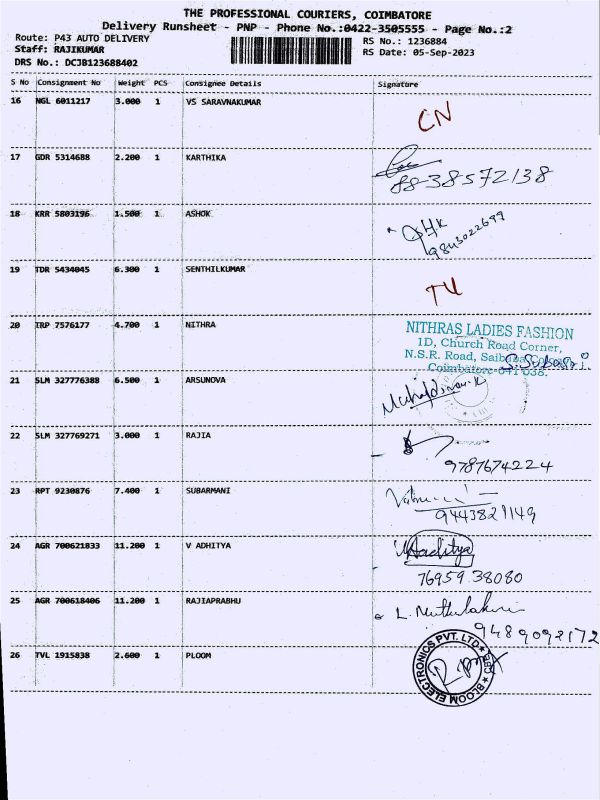 THE PROFESSIONAL COURIERS, COIMBATORE
Delivery Runsheet - PNP - Phone No.:0422-3505555 - Page No.:2
Route: P43 AUTO DELIVERY
RS No.: 1236884
Staff: RAJIKUMAR
RS Date: 05-Sep-2023
DRS No.: DCJB123688402
S No Consignment No Weight PCS Consignee Details Signature
16 NGL 6011217 3.000 1 VS SARAVNAKUMAR
CN
17 GDR 5314688 2.200 1 KARTHIKA
88-38572138
18 KRR 5803196 1.500 1 ASHOK
9843022699
19 TDR 5434045 6.300 1 SENTHILKUMAR
20 IRP 7576177 4.700 1 NITHRA
NITHRAS LADIES FASHION
1D, Church Road Corner,
N.S.R. Road, Saibaba Colony
Coimbatore-641 038.
21 SLM 327776388 6.500 1 ARSUNOVA
22 SLM 327769271 3.000 1 RAJIA
9787674224
23 RPT 9230876 7.400 1 SUBARMANI
9443821149
24 AGR 700621833 11.200 1 V ADHITYA
VAaditya
76959 38080
25 AGR 700618406 11.200 1 RAJIAPRABHU
9489098172
26 TVL 1915838 2.600 1 PLOOM
BLOOM ELECTRONICS PVT. LTD